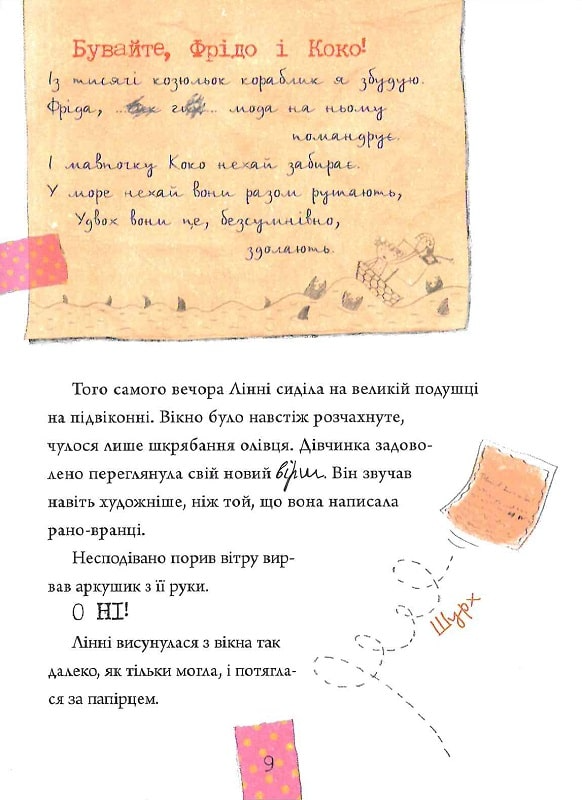 Бувайте, Фрідо і Коко!
Із тисячі козюльок кораблик я збудую.
Фріда, ... мода на ньому
помандрує.
І мавпочку Коко нехай забирає.
У море нехай вони разом рушають,
Удвох вони це, безсумнівно,
здолають.
Того самого вечора Лінні сиділа на великій подушці
на підвіконні. Вікно було навстіж розчахнуте,
чулося лише шкрябання олівця. Дівчинка задово-
лено переглянула свій новий вірш. Він звучав
навіть художніше, ніж той, що вона написала
рано-вранці.
Несподівано порив вітру вир-
вав аркушик з її руки.
О НІ!
Шурх
Лінні висунулася з вікна так
далеко, як тільки могла, і потягла-
ся за папірцем.
9